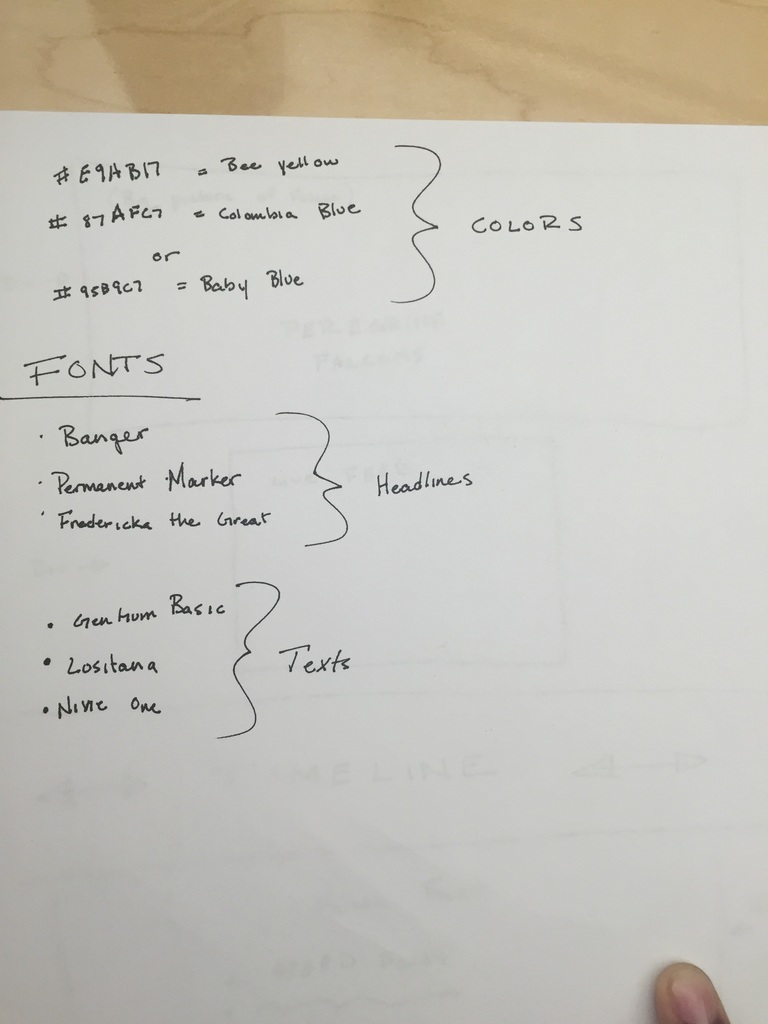 # E9AB17 = Bee yellow
# 87AFC7 = Colombia Blue
or
# 95B9C7 = Baby Blue
COLORS
FONTS
· Banger
· Permanent Marker
· Fredericka the Great
Headlines
• Gentium Basic
• Lositana
• Nixie One
Texts
PEREGRINE
FALCONS
LIVE FEED
TIMELINE